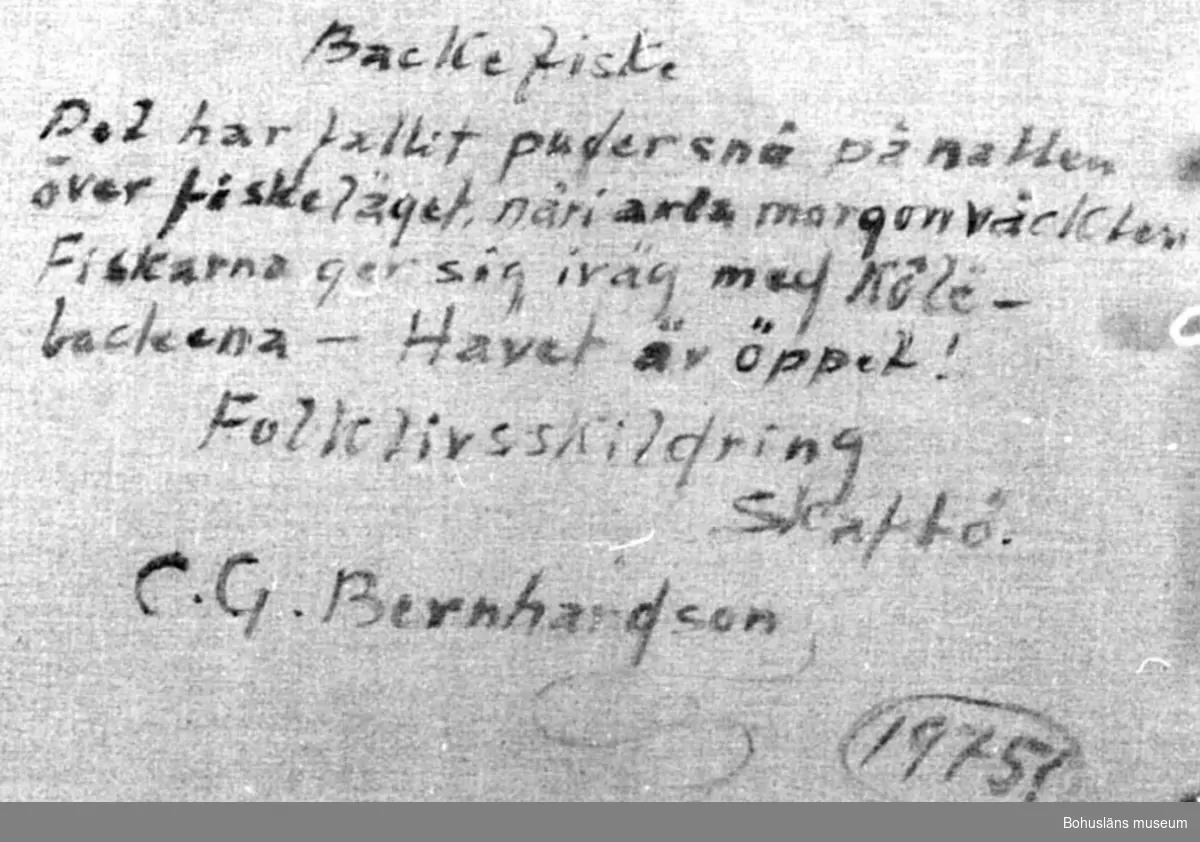 Backefiske
Det har fallit pudersnö på natten
över fiskeläget, när i arla morgonväckten
Fiskarna ger sig iväg med Kölë-
backeena – Havet är öppet!
Folklivsskildring
Skaftö.
C.G. Bernhardson
1975?
Bohusläns museum